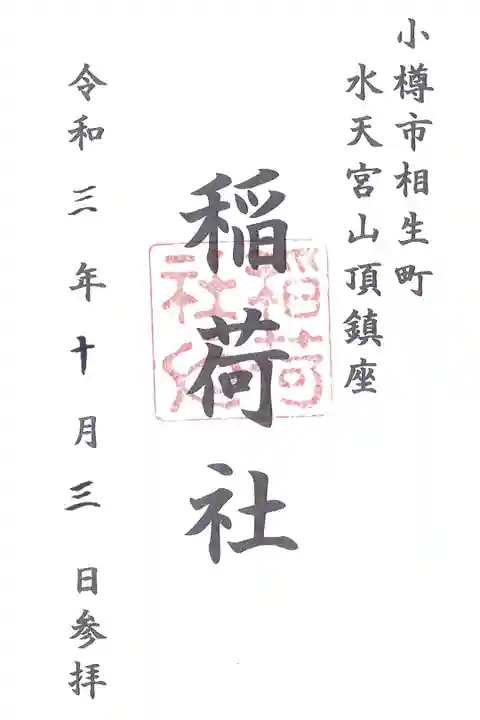 小樽市相生町
水天宮山頂鎮座
稲荷社
令和三年十月三日参拝